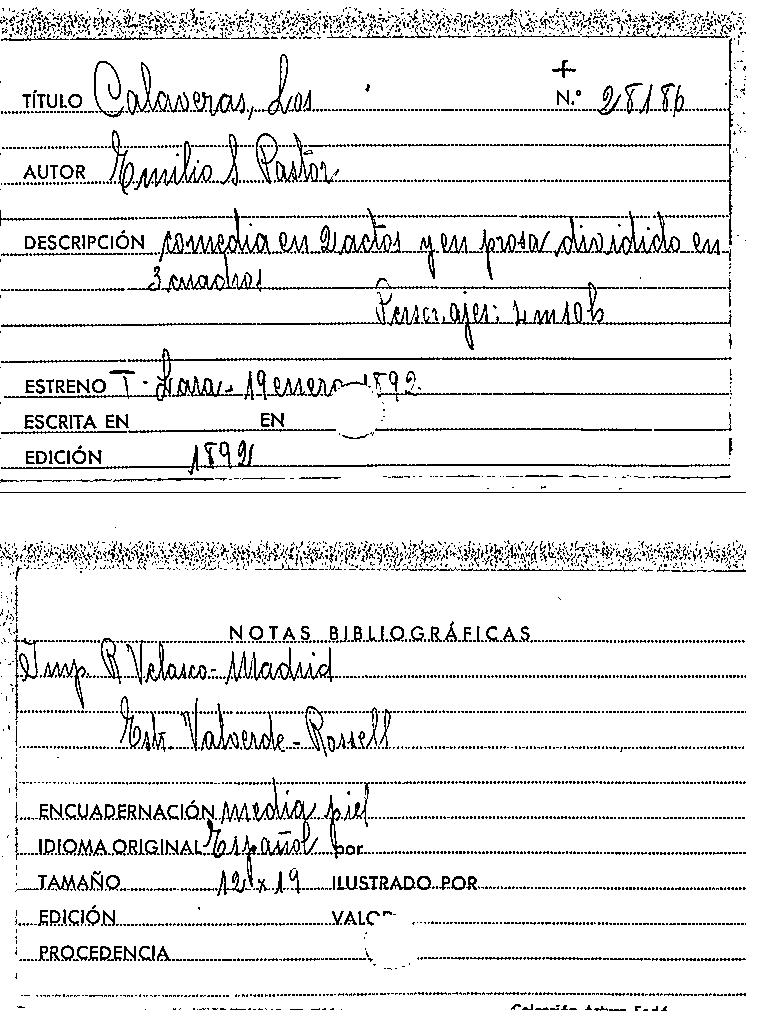 +
TÍTULO Calaveras, Los N.º 28186
AUTOR Emilio S Pastor
DESCRIPCIÓN comedia en 2 actos y en prosa dividido en
3 cuadros
Personajes: 4 m 10 h
ESTRENO T. Lara - 19 enero 1892
ESCRITA EN EN
EDICIÓN 1892
NOTAS BIBLIOGRÁFICAS
Imp R Velasco - Madrid
Estr. Valverde - Rossell
ENCUADERNACIÓN media piel
IDIOMA ORIGINAL Español por
TAMAÑO 12 x 19 ILUSTRADO POR
EDICIÓN VALOR
PROCEDENCIA
Colección Arturo Sedó